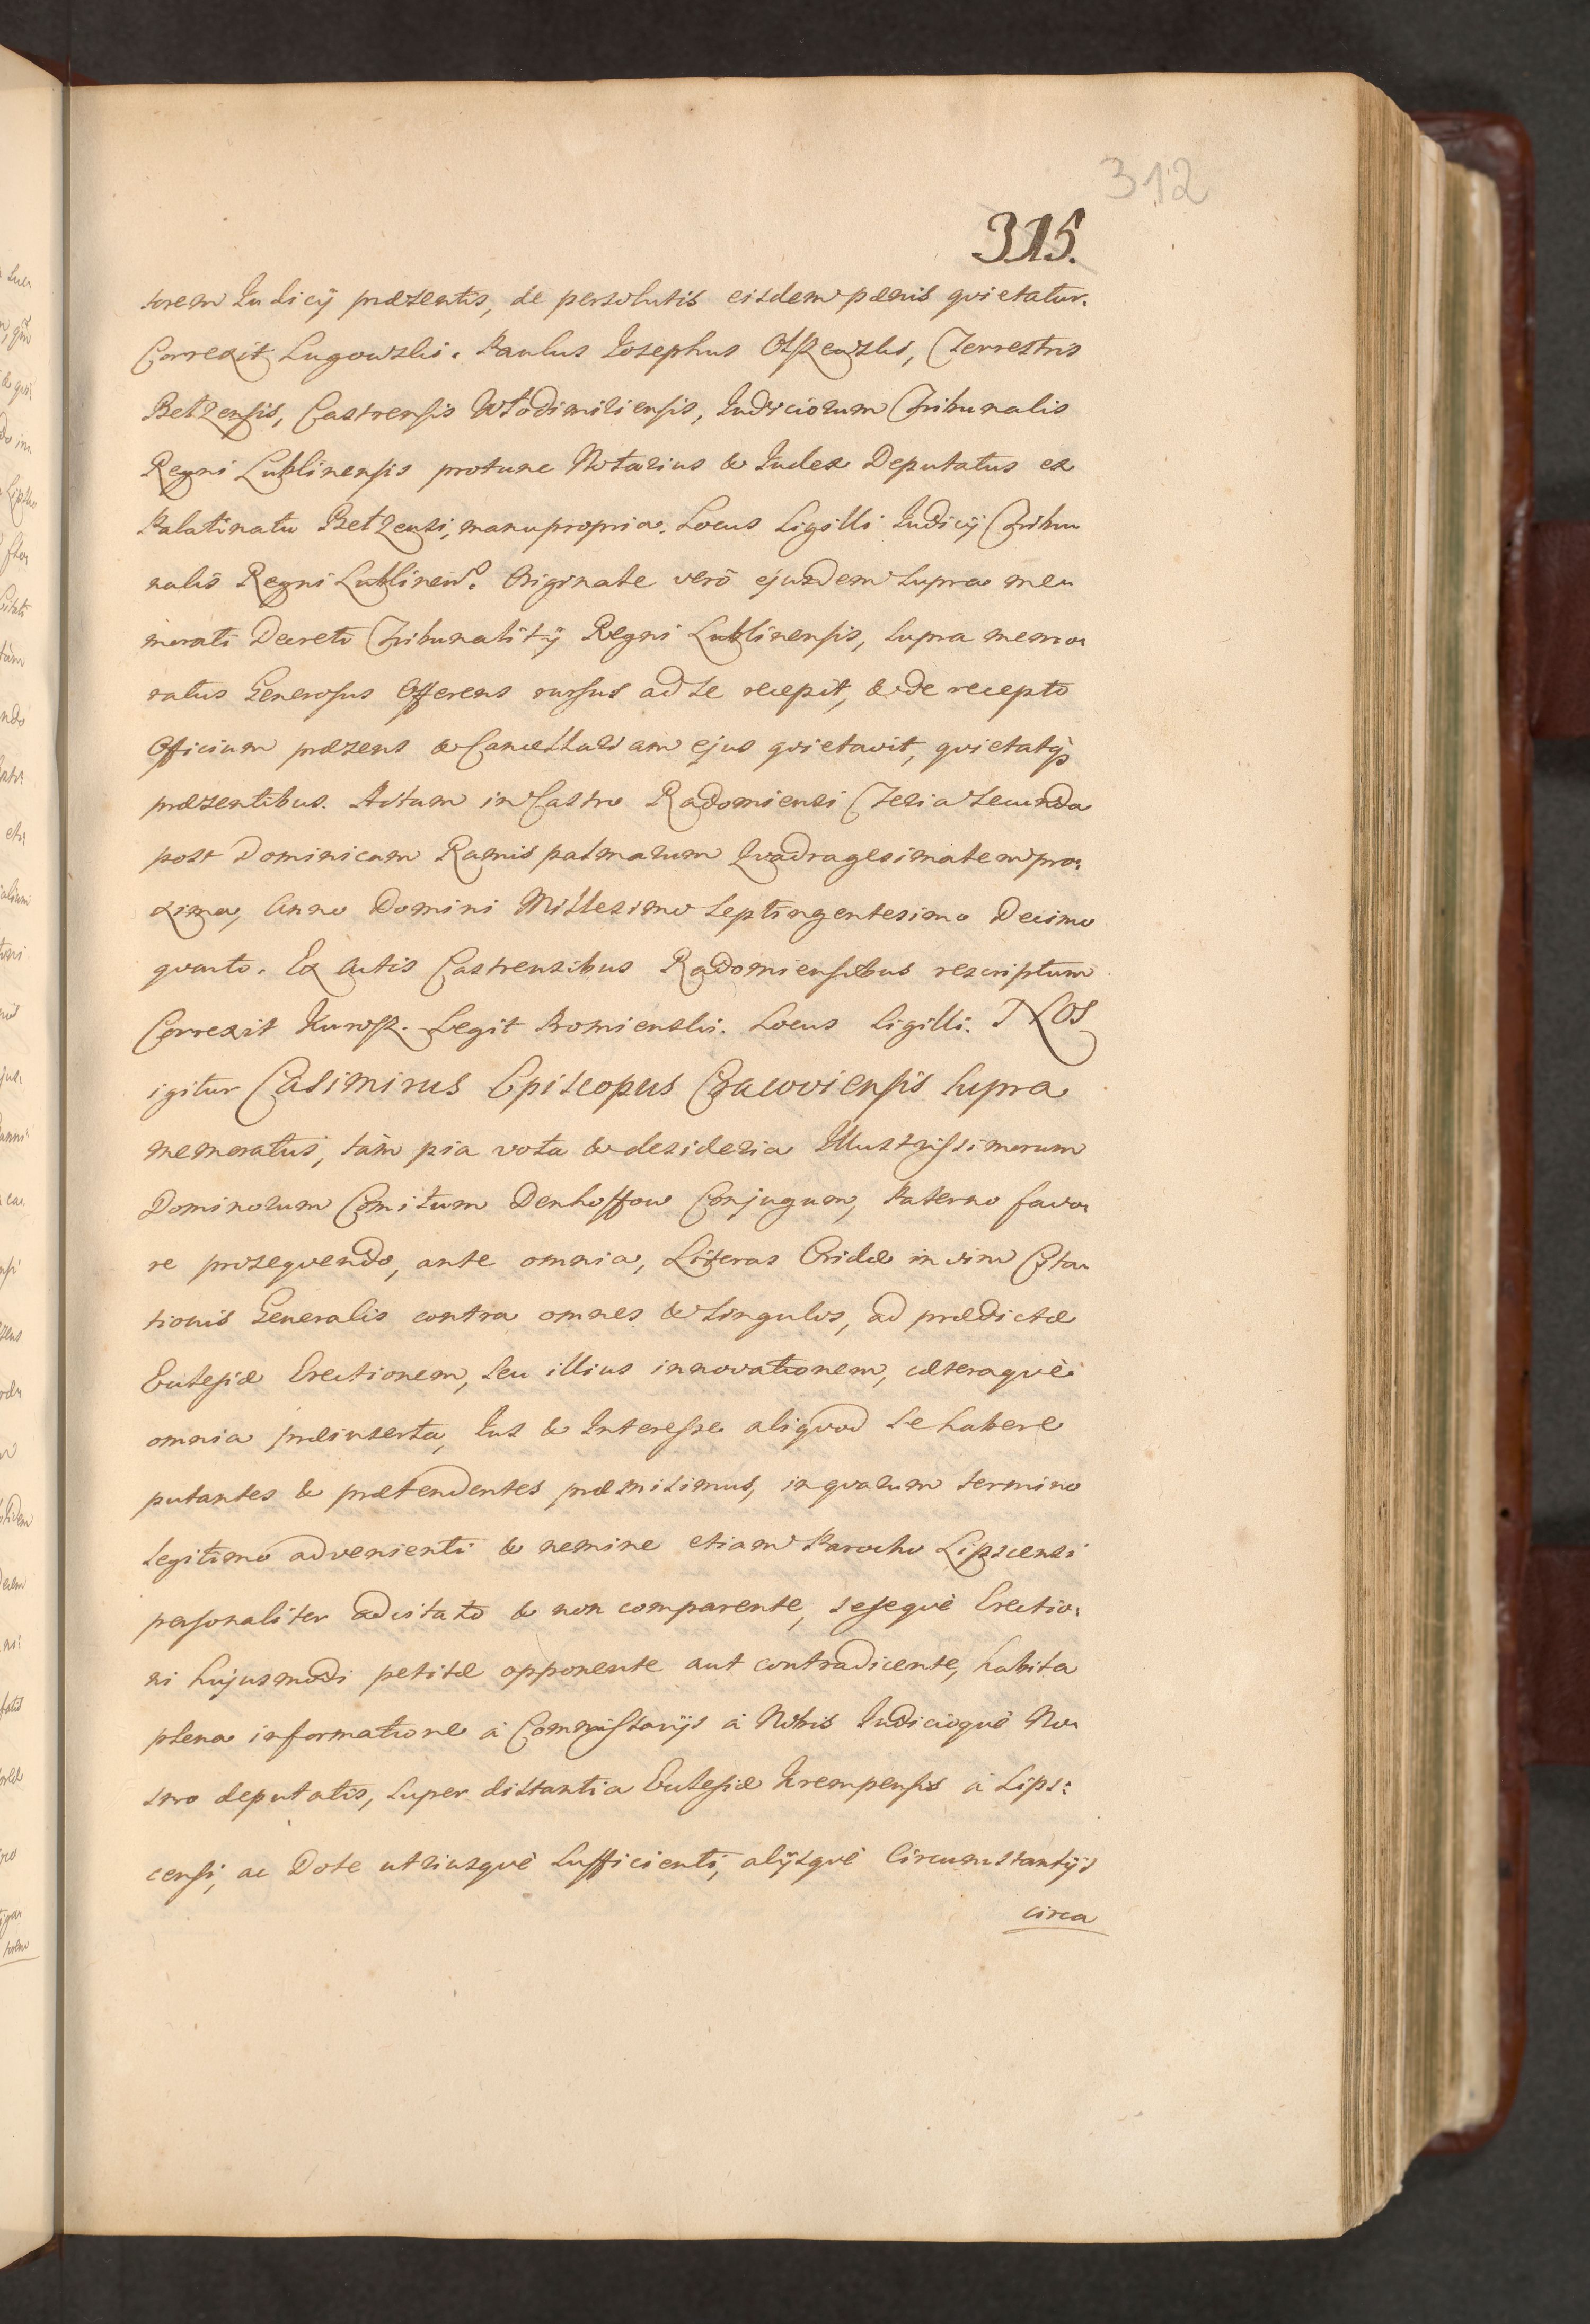 312
315.
torem Iudicij præsentis, de persolutis eisdem pænis quietatur.
Correxit Lugowski. Paulus Iosephus Olszewski, Terrestris
Betzensis, Castrensis Wlodimiriensis, Iudiciorum Tribunalis
Regni Lublinensis protunc Notarius & Iudex Deputatus ex
Palatinatu Betzensi, manupropria. Locus Sigilli Iudicij Tribu
nalis Regni Lublinen. Originale verò ejusdem supra me
morati Decreti Tribunalitij Regni Lublinensis, supra memo
ratus Generosus Offerens rursus ad se recepit, & de recepto
Officium præsens & Cancellariam ejus quietavit, quietatq
præsentibus. Actum in Castro Radomiensi Feria Secunda
post Dominicam Ramis palmarum Quadragesimalem pro:
xima, Anno Domini Millesimo Septingentesimo Decimo
quarto. Ex Actis Castrensibus Radomiensibus rescriptum
Correxit Kurosz. Legit Bomienski. Locus Sigilli. NOS
igitur Casimirus Episcopus Cracoviensis Supra
memoratus, tàm pia vota & desideria Illustrissimorum
Dominorum Comitum Denhoffow Conjugum, Paterno favo
re prosequendo, ante omnia, Literas Cridæ in vim Cita
tionis Generalis contra omnes & Singulos, ad prædictæ
Ecclesiæ Erectionem, seu illius innovationem, cæteraquè
omnia præinserta, Ius & Interesse aliquod se habere
putantes & prætendentes præmisimus, in quarum termino
legitimo advenienti & nemine etiam Parocho Lipscensi
personaliter adcitato & non comparente, seseque Erectio:
ni hujusmodi petitæ opponente aut contradicente, habita
plena informatione à Commissarijs à Nobis Iudicioquè No
stro deputatis, super distantia Ecclesiæ Krempensis à Lips:
censi, ac Dote utriusquè sufficienti, alijsquè Circumstantijs
circa